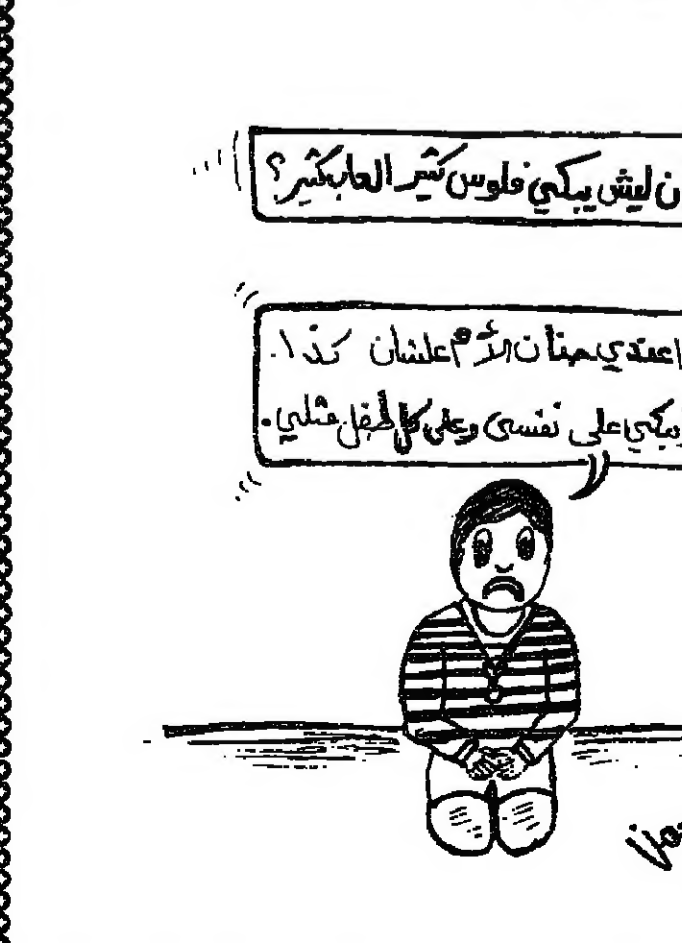 ن ليش يبكي فلوس كثير العاب كثير؟
عندي حنان الأم علشان كذا.
ابكي على نفسي وعلى كل طفل مثلي.